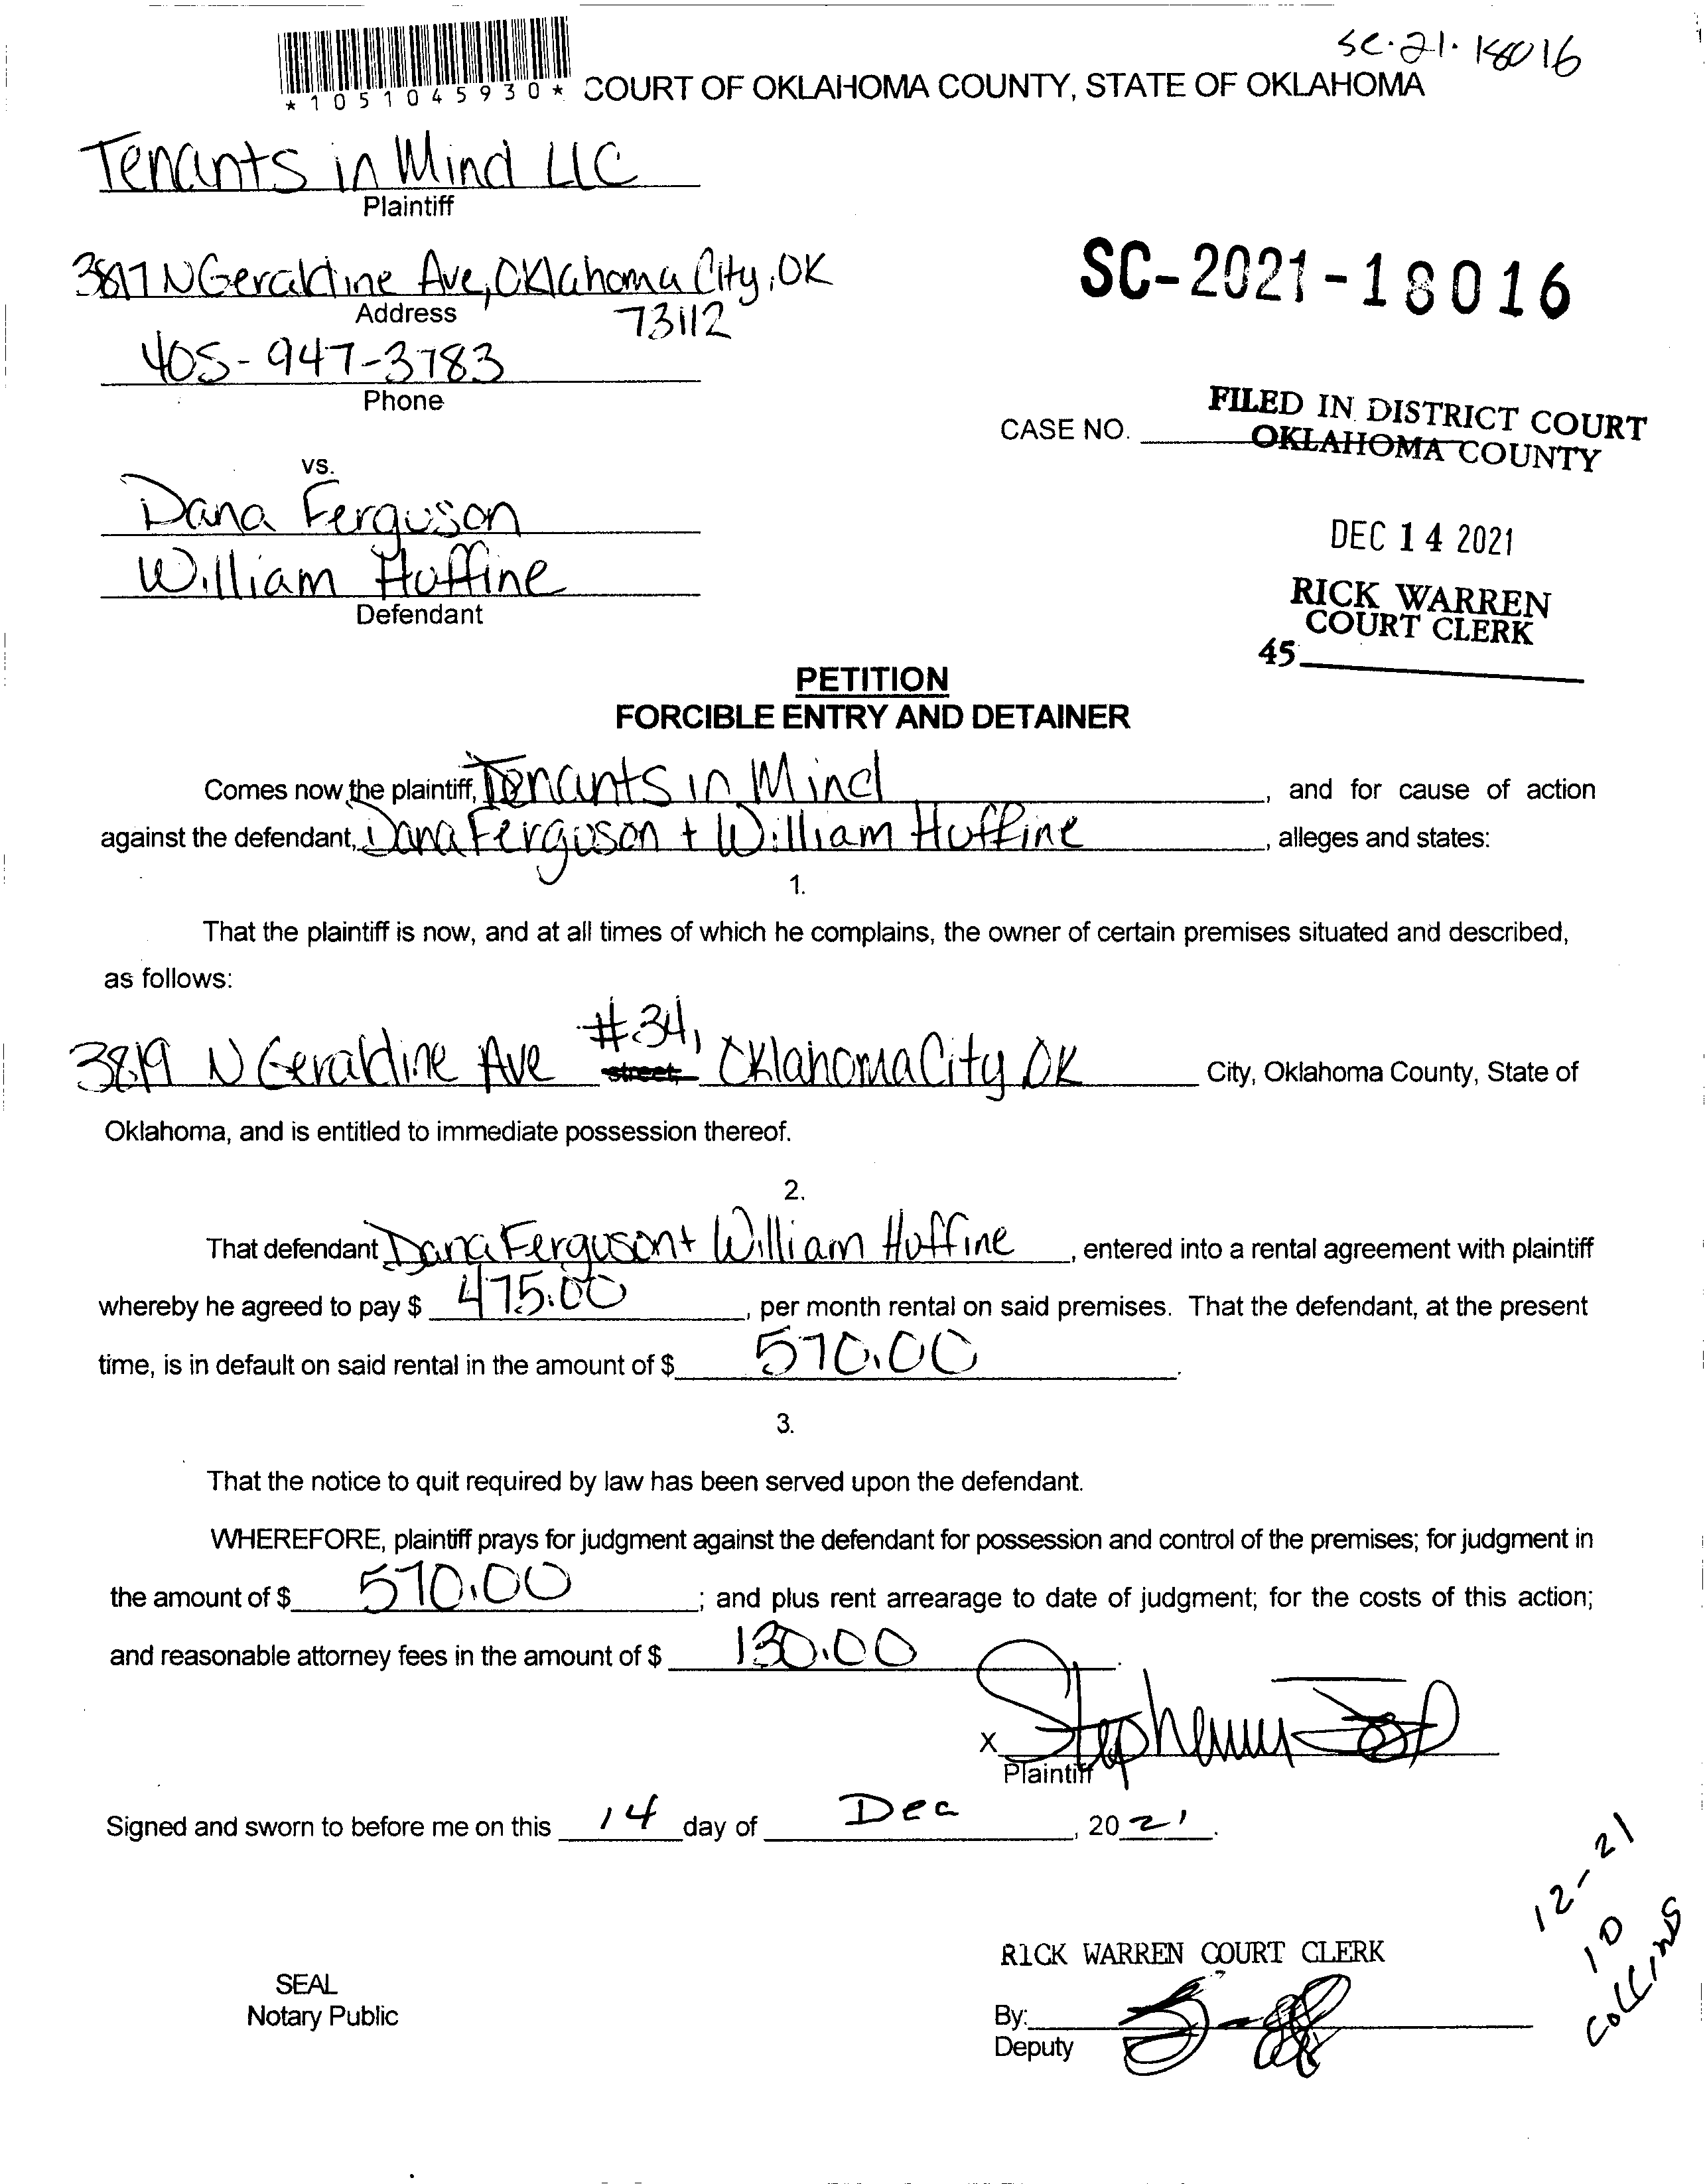 sc-21-18016
*1051045930* COURT OF OKLAHOMA COUNTY, STATE OF OKLAHOMA
Tenants in Mind LLC
Plaintiff
3817 N Geraldine Ave, Oklahoma City, OK
Address 73112
405-947-3783
Phone
SC-2021-18016
CASE NO.
FILED IN DISTRICT COURT
OKLAHOMA COUNTY
DEC 14 2021
RICK WARREN
COURT CLERK
45
vs.
Dana Ferguson
William Huffine
Defendant
PETITION
FORCIBLE ENTRY AND DETAINER
Comes now the plaintiff, Tenants in Mind, and for cause of action
against the defendant, Dana Ferguson + William Huffine, alleges and states:
1.
That the plaintiff is now, and at all times of which he complains, the owner of certain premises situated and described,
as follows:
3819 N Geraldine Ave #34, street, Oklahoma City OK City, Oklahoma County, State of
Oklahoma, and is entitled to immediate possession thereof.
2.
That defendant Dana Ferguson + William Huffine, entered into a rental agreement with plaintiff
whereby he agreed to pay $ 475.00, per month rental on said premises. That the defendant, at the present
time, is in default on said rental in the amount of $ 570.00.
3.
That the notice to quit required by law has been served upon the defendant.
WHEREFORE, plaintiff prays for judgment against the defendant for possession and control of the premises; for judgment in
the amount of $ 570.00; and plus rent arrearage to date of judgment; for the costs of this action;
and reasonable attorney fees in the amount of $ 130.00.
x
Plaintiff
Signed and sworn to before me on this 14 day of Dec, 2021.
12-21
10
Collins
RICK WARREN COURT CLERK
SEAL
Notary Public
By:
Deputy